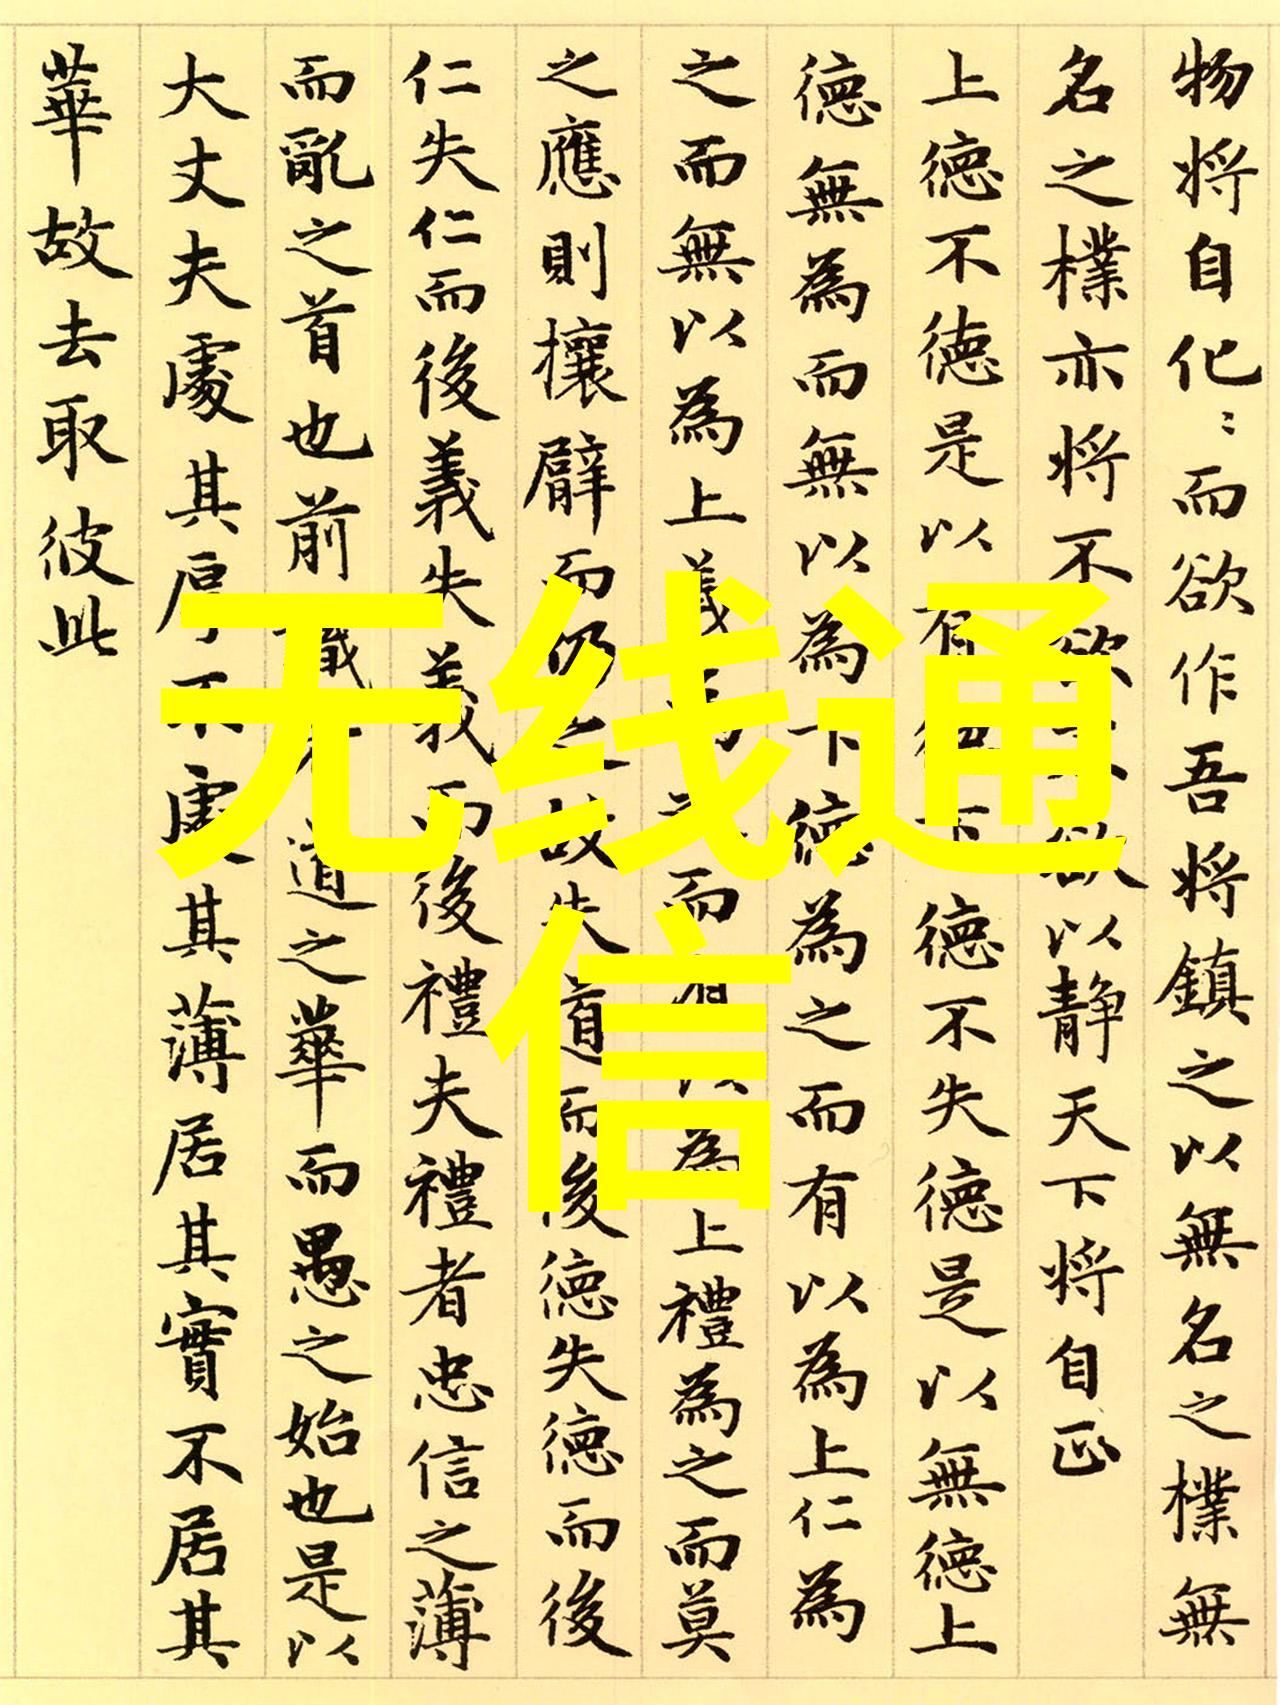 物将自化〻而欲作吾将鎮之以無名之樸無
名之樸亦将不欲欲以静天下将自正
上德不德是以有德下德不失德是以無德上
德無為而無以為下德為之而有以為上仁為
之而無以為上義為之而有以為上禮為之而莫
之應則攘臂而仍之故失道而後德失德而後
仁失仁而後義失義而後禮夫禮者忠信之薄
而亂之首也前識道之華而愚之始也是以
大丈夫處其厚不處其薄居其實不居其
華故去取彼此
无线通
信